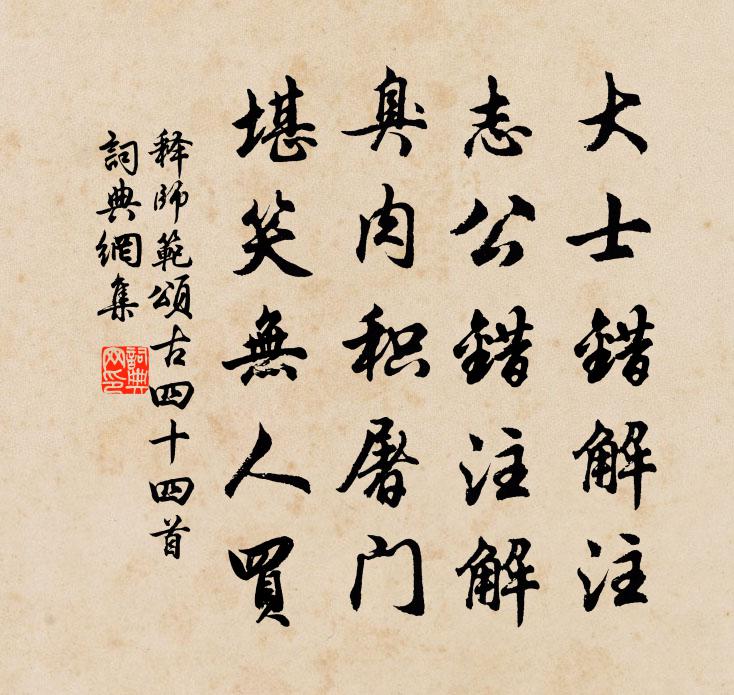 大士錯解注
志公錯注解
臭肉积屠门
堪笑無人買
释師範頌古四十四首
詞典網集
詞典網印